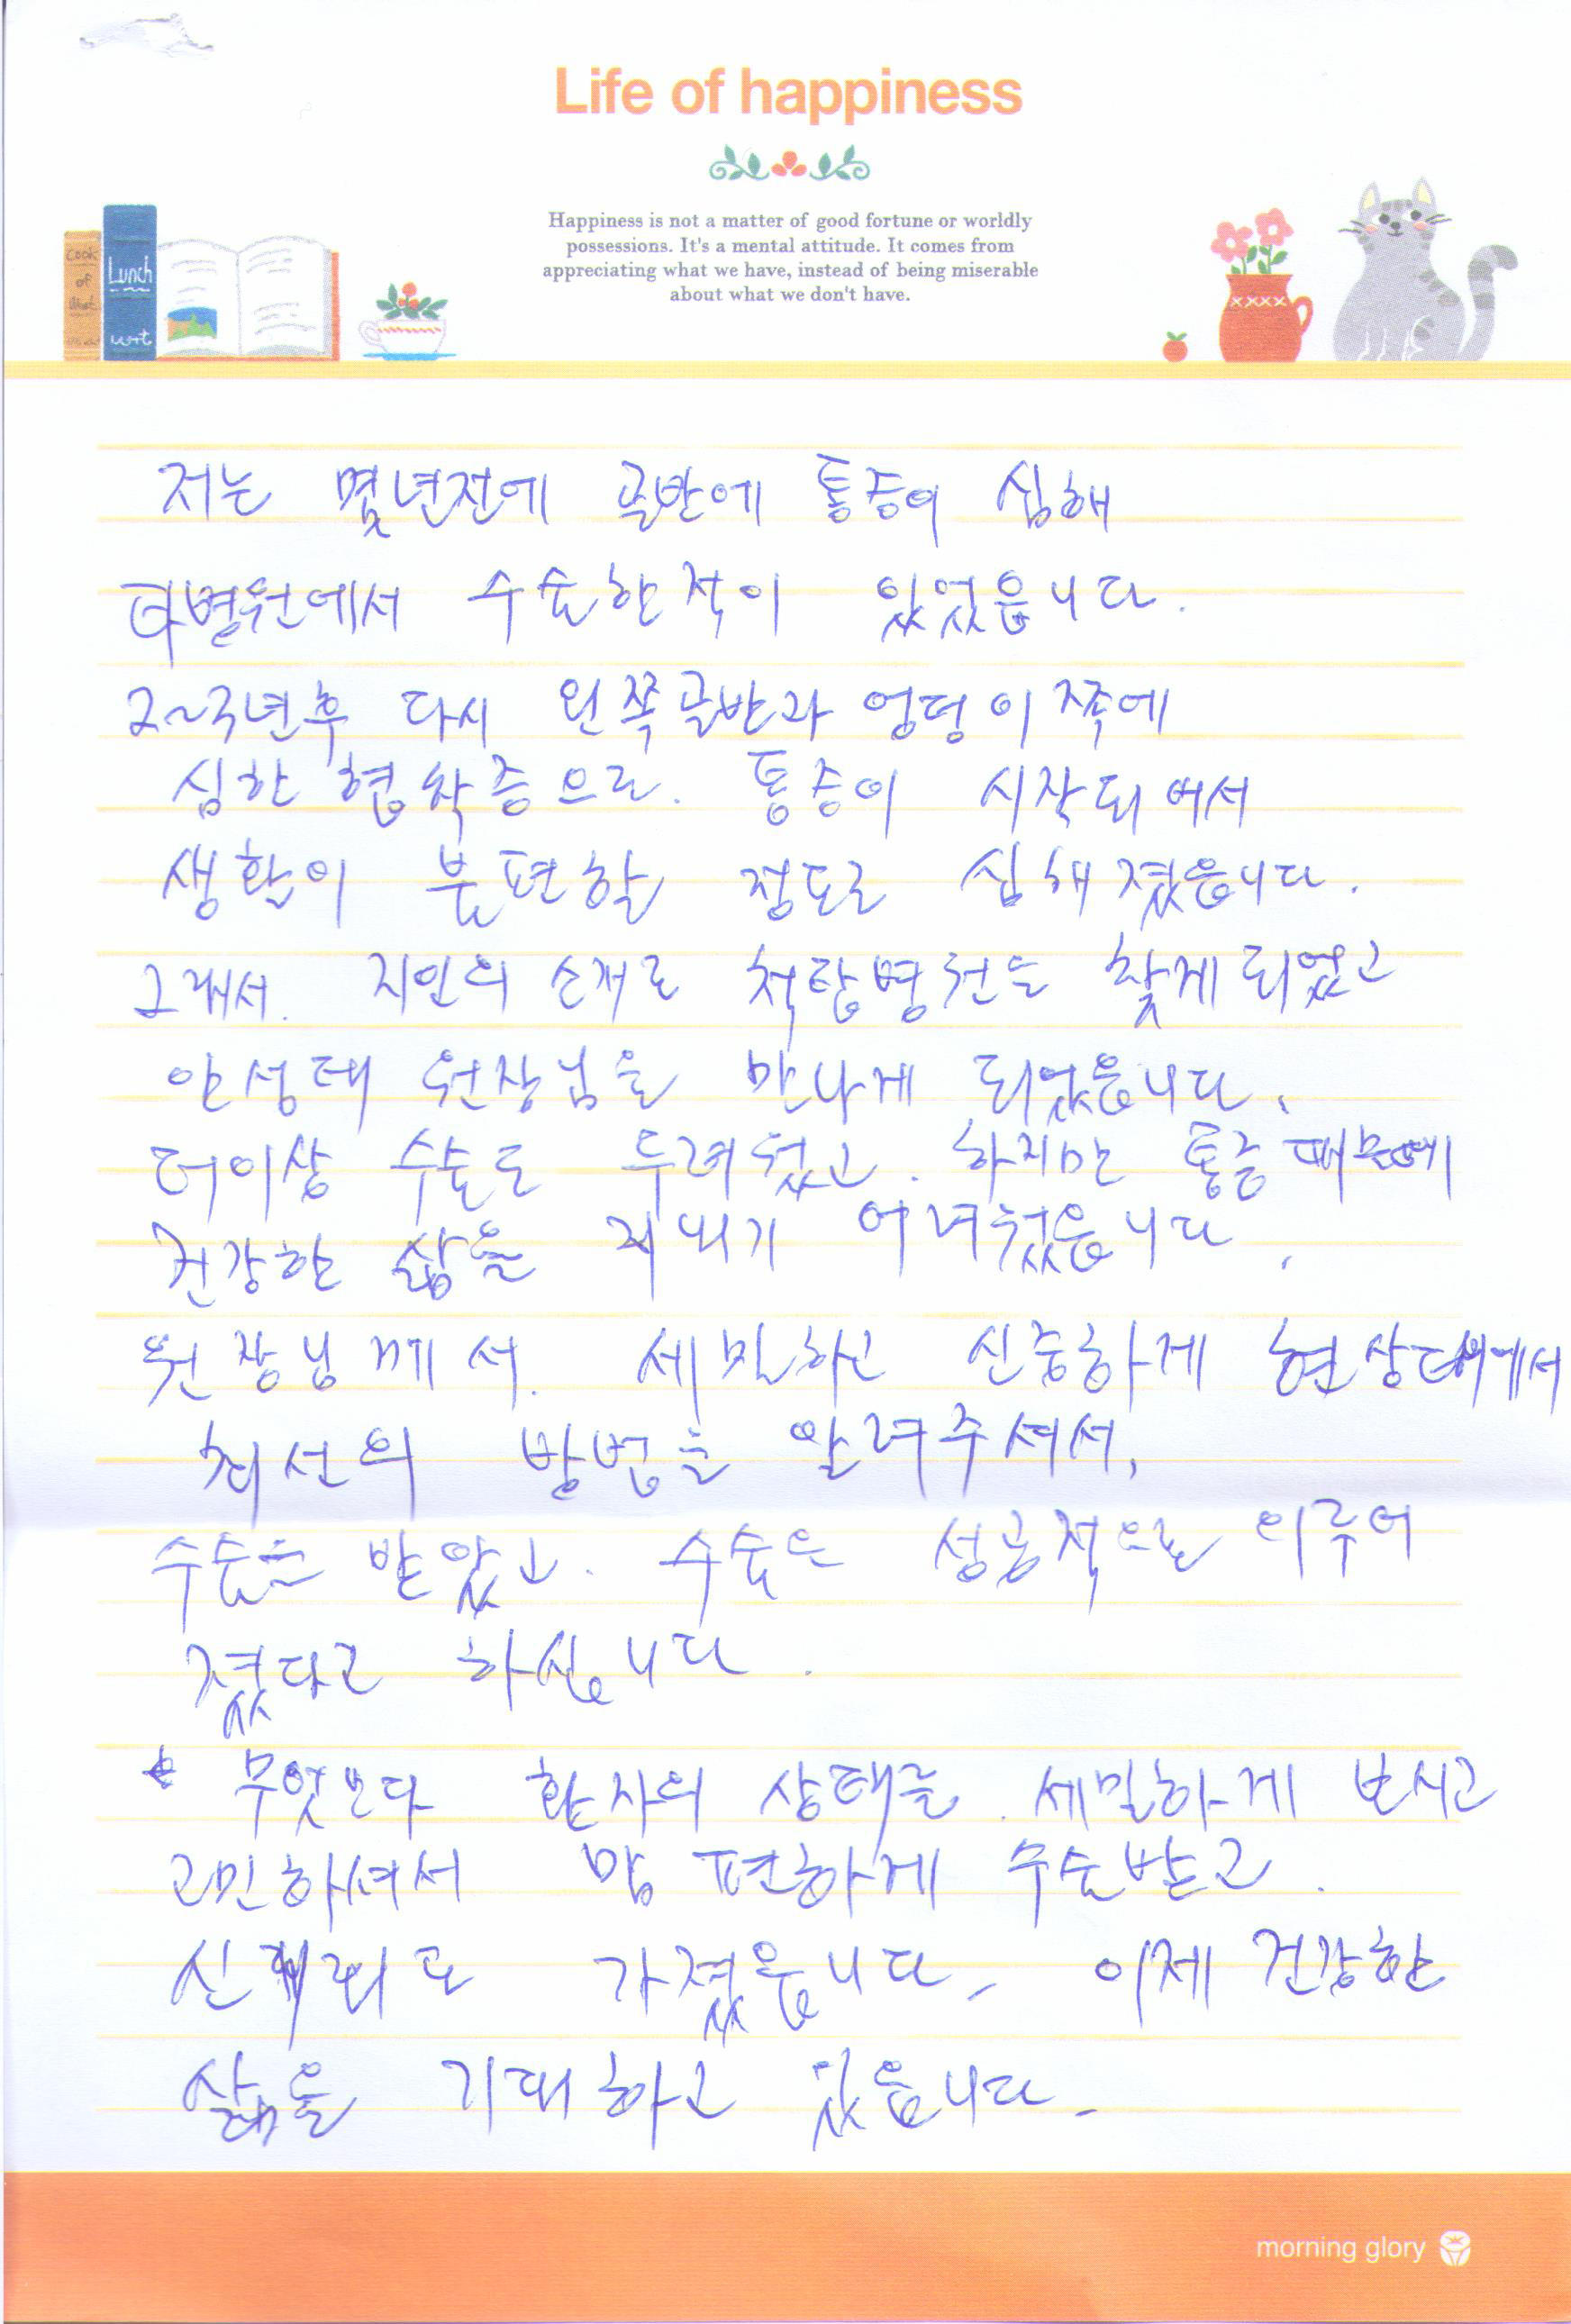 Life of happiness
Happiness is not a matter of good fortune or worldly
possessions. It's a mental attitude. It comes from
appreciating what we have, instead of being miserable
about what we don't have.
Cook
of
Lunch
저는 몇년전에 골반에 통증이 심해
타병원에서 수술한적이 있었읍니다.
2~3년후 다시 왼쪽골반과 엉덩이쪽에
심한 협착증으로. 통증이 시작되어서
생활이 불편할 정도로 심해졌읍니다.
그래서. 지인의 소개로 척탑병원을 찾게되었고
안성대 원장님을 만나게 되었읍니다.
더이상 수술도 두려웠고. 하지만 통증때문에
건강한 삶을 지내기 어려웠읍니다.
원장님께서. 세밀하고 신중하게 현상태에서
최선의 방법을 알려주셔서,
수술을 받았고. 수술은 성공적으로 이루어
졌다고 하십니다.
무엇보다 환자의 상태를. 세밀하게 보시고
고민하셔서 맘 편하게 수술받고.
신뢰도 가졌읍니다. 이제 건강한
삶을 기대하고 있읍니다.
morning glory